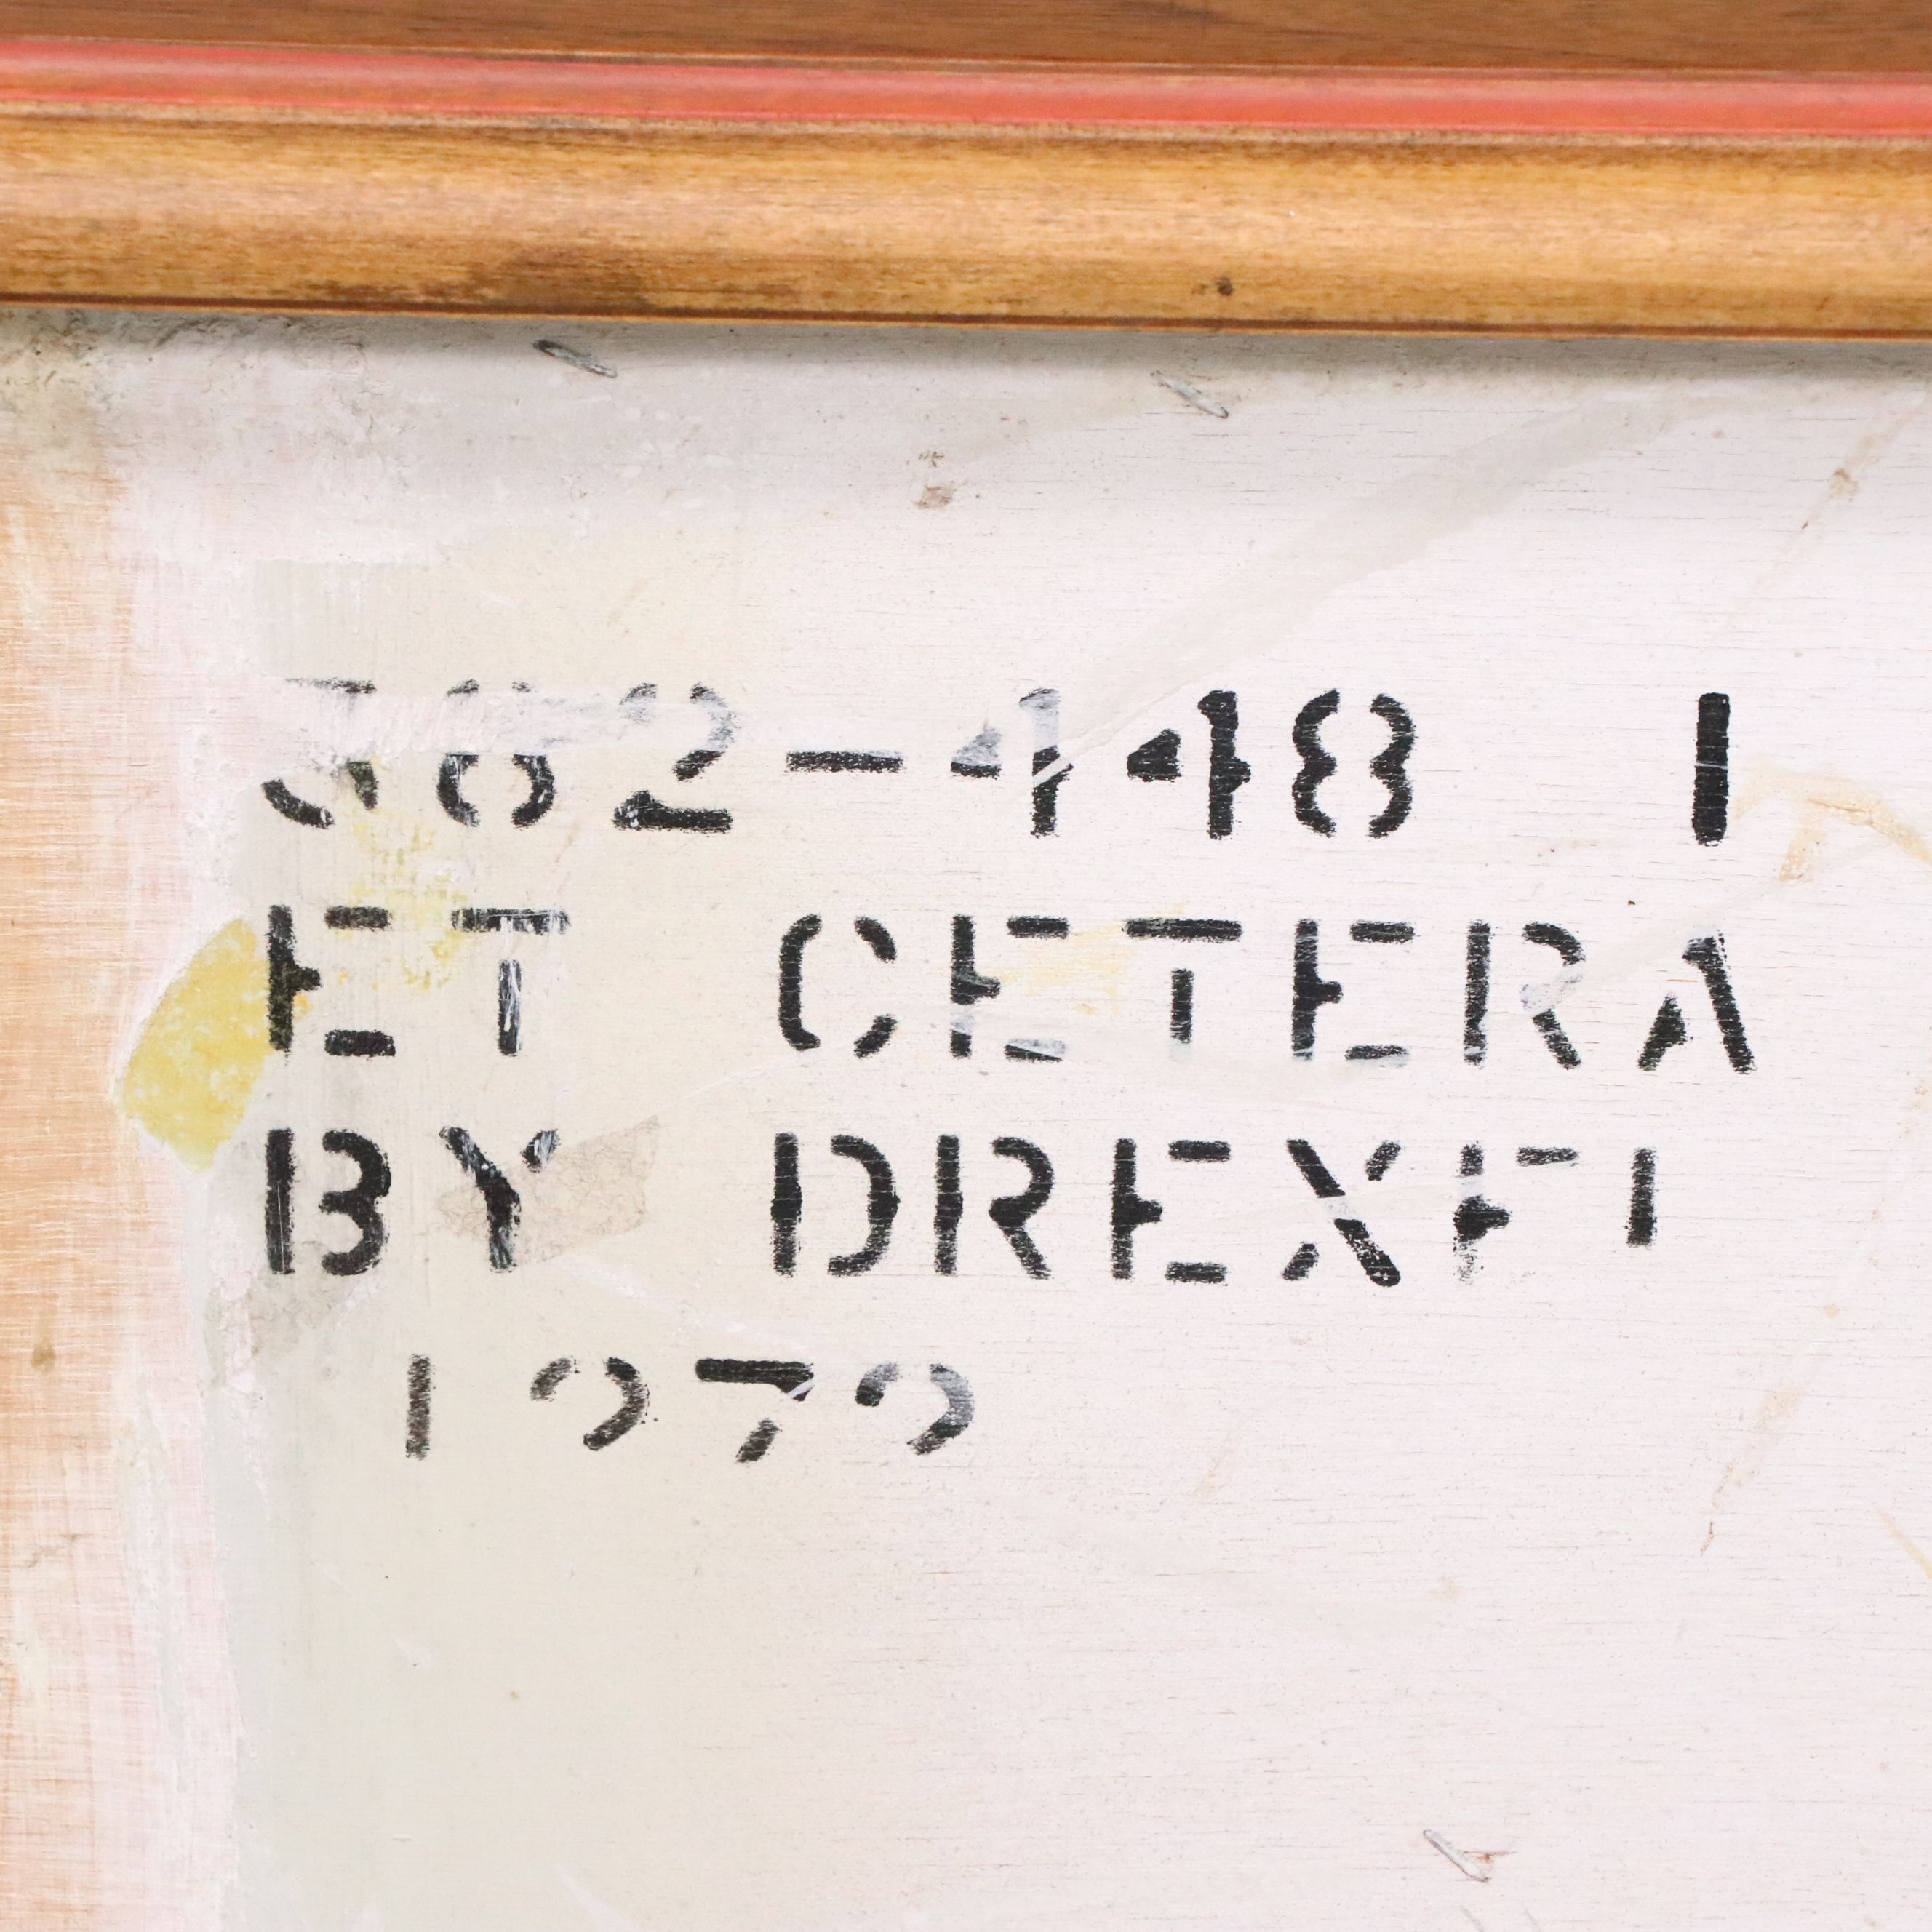 382-448 1
ET CETERA
BY DREXEL
1979